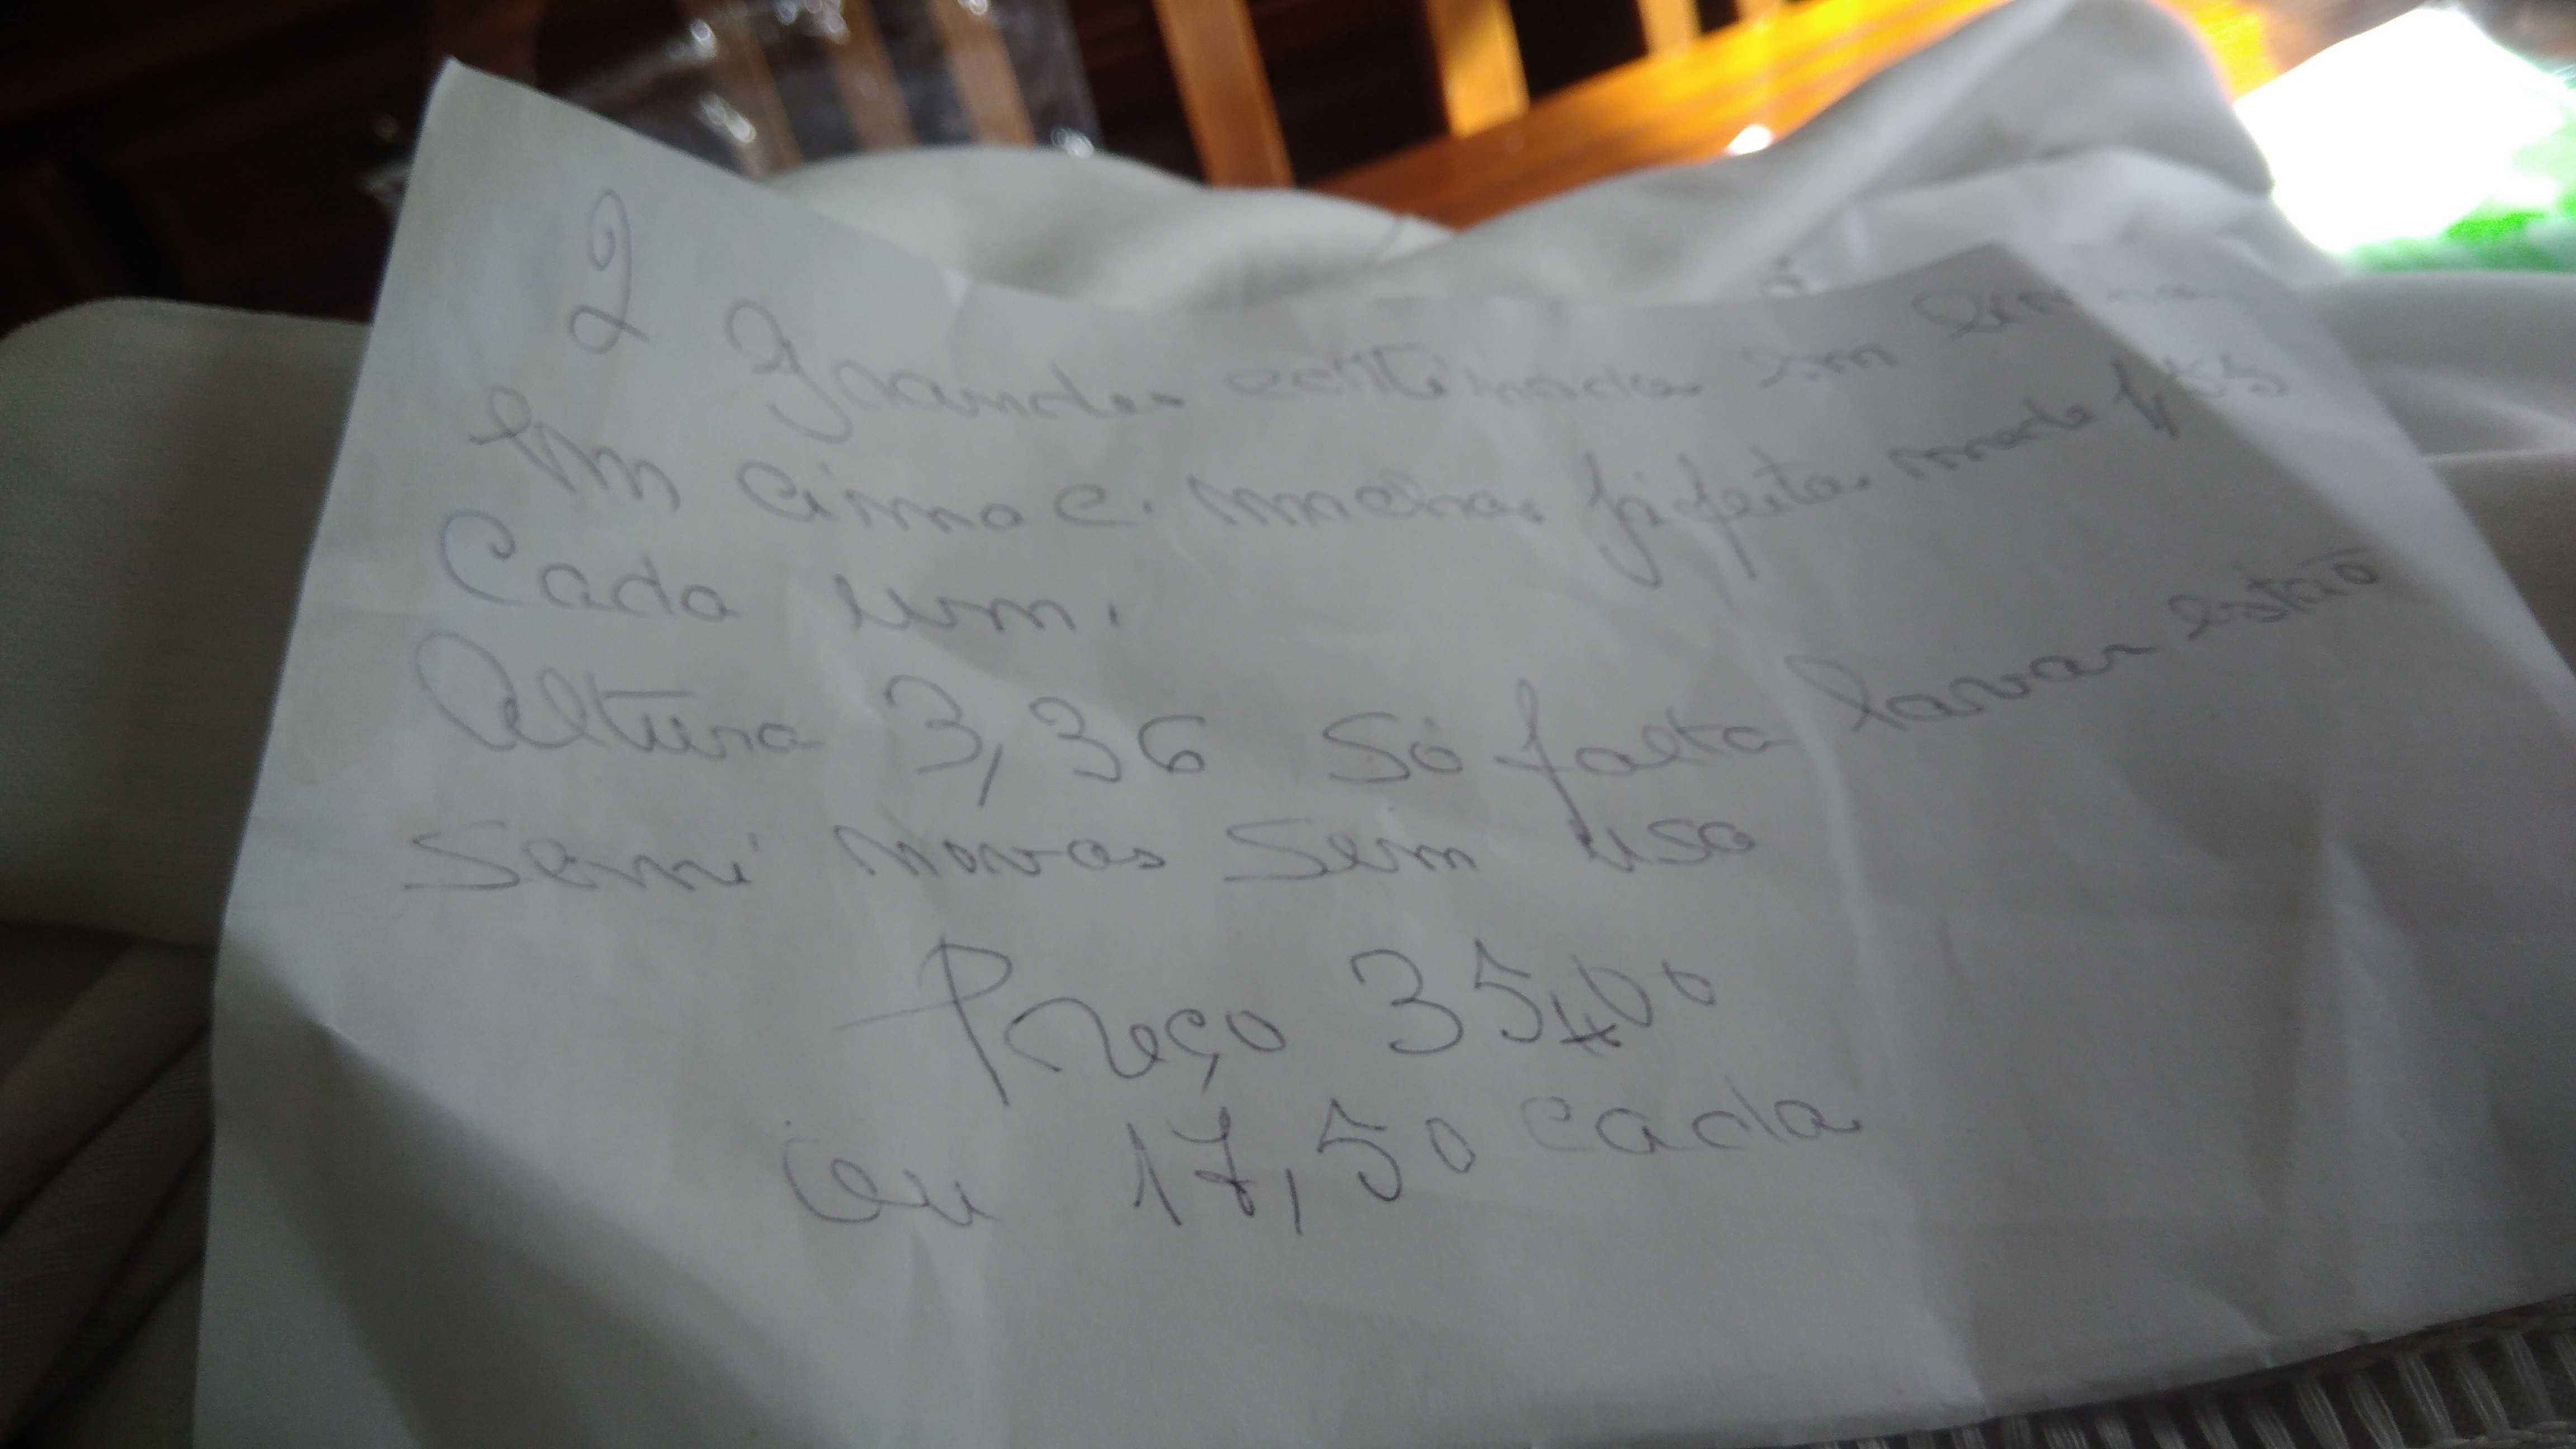 2 Grandes cortinados em
em cima c. machos já feitas mede 1,
Cada um.
Altura 3,36 Só falta lavar estão
Semi novas Sem uso
Preço 35,00
ou 17,50 cada